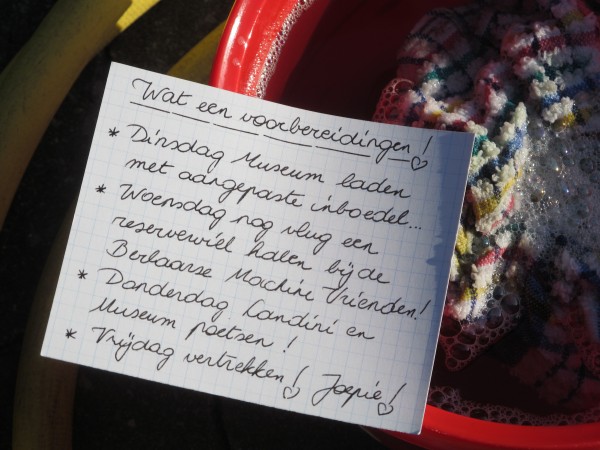 Wat een voorbereidingen!
* Dinsdag Museum laden
met aangepaste inboedel...
* Woensdag nog vlug een
reservewiel halen bij de
Berlaarse Machine Vrienden!
* Donderdag Landini en
Museum poetsen!
* Vrijdag vertrekken! Joepie!